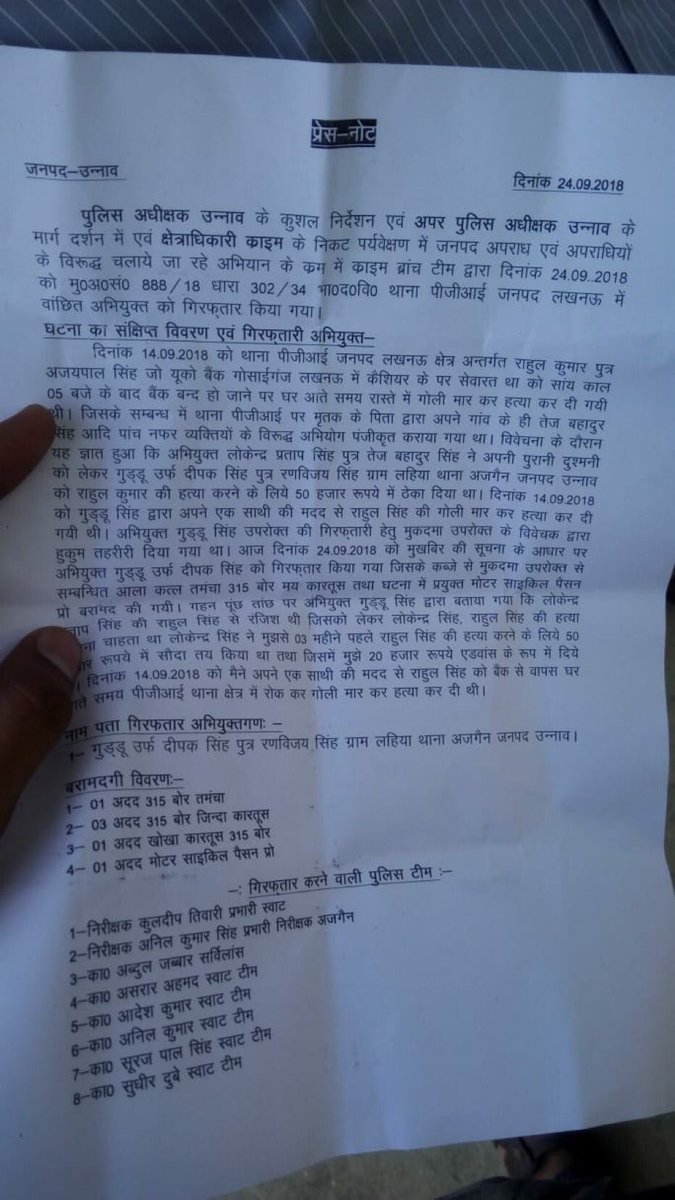 प्रेस–नोट
जनपद–उन्नाव
दिनांक 24.09.2018
पुलिस अधीक्षक उन्नाव के कुशल निर्देशन एवं अपर पुलिस अधीक्षक उन्नाव के
मार्ग दर्शन में एवं क्षेत्राधिकारी काइम के निकट पर्यवेक्षण में जनपद अपराध एवं अपराधियों
के विरूद्ध चलाये जा रहे अभियान के कम में काइम ब्रांच टीम द्वारा दिनांक 24.09..2018
को मु0अ0सं0 888/18 धारा 302/34 भा0द0वि0 थाना पीजीआई जनपद लखनऊ में
वांछित अभियुक्त को गिरफ्तार किया गया।
घटना का संक्षिप्त विवरण एवं गिरफ्तारी अभियुक्त–
दिनांक 14.09.2018 को थाना पीजीआई जनपद लखनऊ क्षेत्र अन्तर्गत राहुल कुमार पुत्र
अजयपाल सिंह जो यूको बैंक गोसाईगंज लखनऊ में कैशियर के पर सेवारत था को सांय काल
05 बजे के बाद बैंक बन्द हो जाने पर घर आते समय रास्ते में गोली मार कर हत्या कर दी गयी
थी। जिसके सम्बन्ध में थाना पीजीआई पर मृतक के पिता द्वारा अपने गांव के ही तेज बहादुर
सिंह आदि पांच नफर व्यक्तियों के विरूद्ध अभियोग पंजीकृत कराया गया था। विवेचना के दौरान
यह ज्ञात हुआ कि अभियुक्त लोकेन्द्र प्रताप सिंह पुत्र तेज बहादुर सिंह ने अपनी पुरानी दुश्मनी
को लेकर गुड्डू उर्फ दीपक सिंह पुत्र रणविजय सिंह ग्राम लहिया थाना अजगैन जनपद उन्नाव
को राहुल कुमार की हत्या करने के लिये 50 हजार रूपये में ठेका दिया था। दिनांक 14.09.2018
को गुड्डू सिंह द्वारा अपने एक साथी की मदद से राहुल सिंह की गोली मार कर हत्या कर दी
गयी थी। अभियुक्त गुड्डू सिंह उपरोक्त की गिरफ्तारी हेतु मुकदमा उपरोक्त के विवेचक द्वारा
हुकुम तहरीरी दिया गया था। आज दिनांक 24.09.2018 को मुखबिर की सूचना के आधार पर
अभियुक्त गुड्डू उर्फ दीपक सिंह को गिरफ्तार किया गया जिसके कब्जे से मुकदमा उपरोक्त से
सम्बन्धित आला कत्ल तमंचा 315 बोर मय कारतूस तथा घटना में प्रयुक्त मोटर साइकिल पैसन
प्रो बरामद की गयी। गहन पूंछ तांछ पर अभियुक्त गुड्डू सिंह द्वारा बताया गया कि लोकेन्द्र
सिंह की राहुल सिंह से रंजिश थी जिसको लेकर लोकेन्द्र सिंह, राहुल सिंह की हत्या
चाहता था लोकेन्द्र सिंह ने मुझसे 03 महीने पहले राहुल सिंह की हत्या करने के लिये 50
रूपये में सौदा तय किया था तथा जिसमें मुझे 20 हजार रूपये एडवांस के रूप में दिये
दिनांक 14.09.2018 को मैने अपने एक साथी की मदद से राहुल सिंह को बैंक से वापस घर
समय पीजीआई थाना क्षेत्र में रोक कर गोली मार कर हत्या कर दी थी।
नाम पता गिरफतार अभियुक्तगणः –
1– गुड्डू उर्फ दीपक सिंह पुत्र रणविजय सिंह ग्राम लहिया थाना अजगैन जनपद उन्नाव।
बरामदगी विवरणः–
1– 01 अदद 315 बोर तमंचा
2– 03 अदद 315 बोर जिन्दा कारतूस
3– 01 अदद खोखा कारतूस 315 बोर
4– 01 अदद मोटर साइकिल पैसन प्रो
–: गिरफ्तार करने वाली पुलिस टीम :–
1–निरीक्षक कुलदीप तिवारी प्रभारी स्वाट
2–निरीक्षक अनिल कुमार सिंह प्रभारी निरीक्षक अजगैन
3–का0 अब्दुल जब्बार सर्विलांस
4–का0 असरार अहमद स्वाट टीम
5–का0 आदेश कुमार स्वाट टीम
6–का0 अनिल कुमार स्वाट टीम
7–का0 सूरज पाल सिंह स्वाट टीम
8–का0 सुधीर दुबे स्वाट टीम